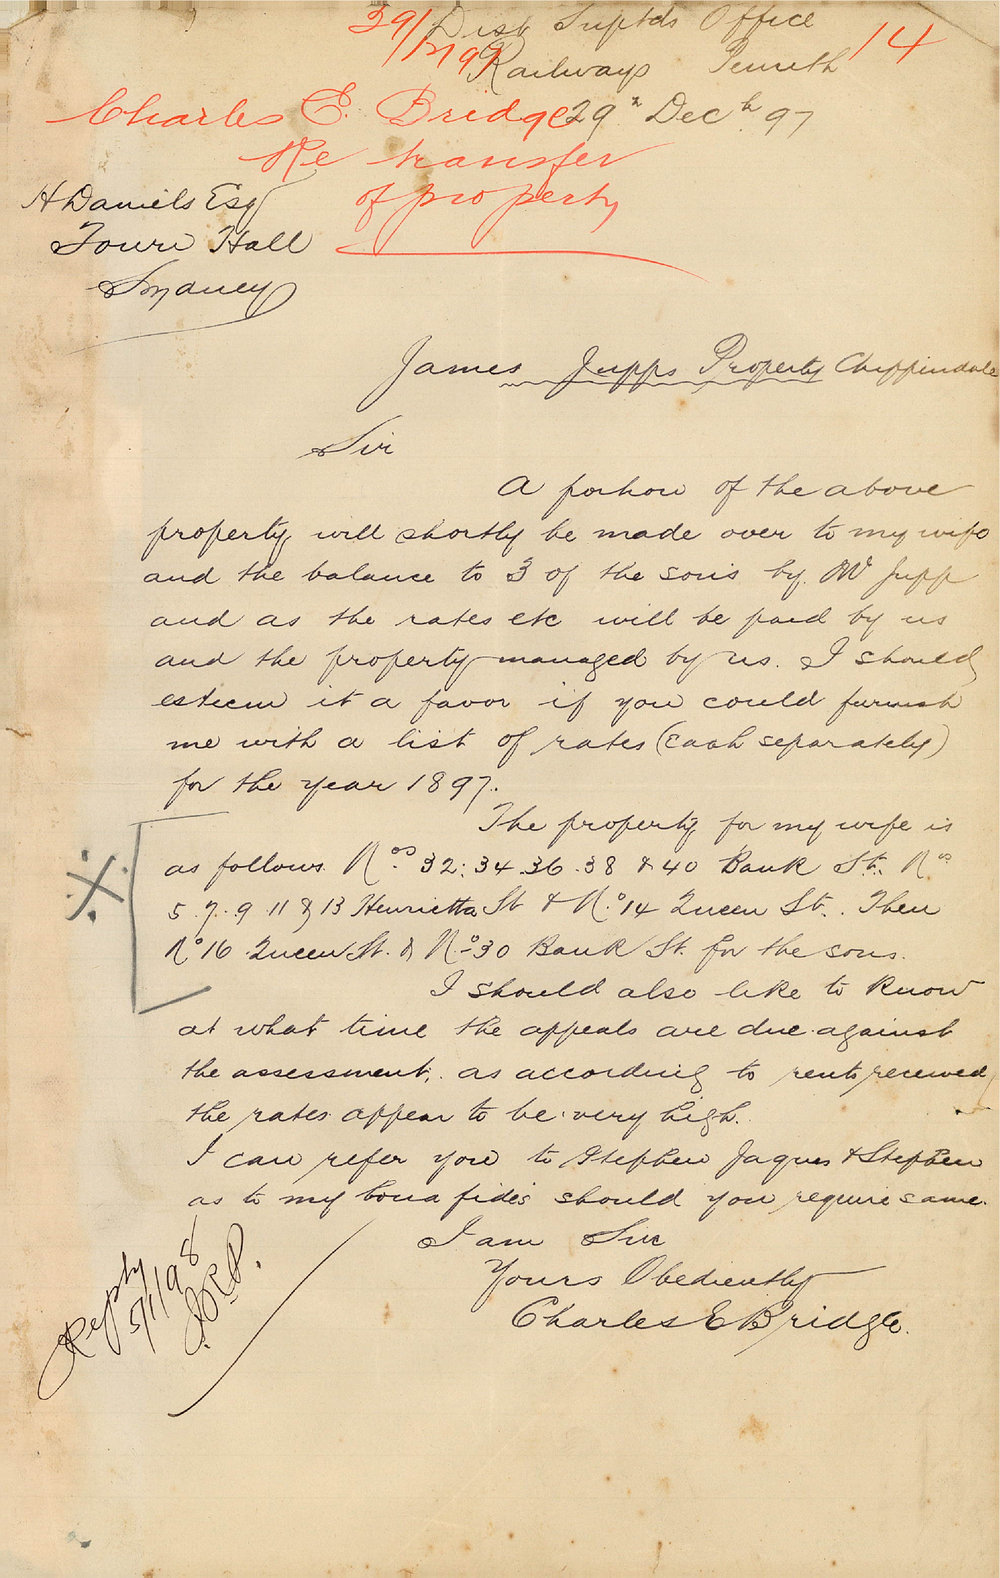 Dist Suptds Office
Railways Penrith
29th Decr 97
14
Charles E. Bridge
Re transfer
of property
H Daniels Esq
Town Hall
Sydney
James Jupps Property Chippindale
Sir
A portion of the above
property will shortly be made over to my wife
and the balance to 3 of the sons by W Jupp
and as the rates etc will be paid by us
and the property managed by us. I should
esteem it a favor if you could furnish
me with a list of rates (each separately)
for the year 1897.
The property for my wife is
as follows Nos 32. 34. 36. 38 & 40 Bank St. Nos
5. 7. 9. 11 & 13 Henrietta St & No 14 Queen St. Then
No 16 Queen St. & No 30 Bank St. for the sons.
I should also like to know
at what time the appeals are due against
the assessment, as according to rents received
the rates appear to be very high.
I can refer you to Stephen Jaques & Stephen
as to my bona fides should you require same.
I am Sir
Yours Obediently
Charles E Bridge.
Reply
5/1/98